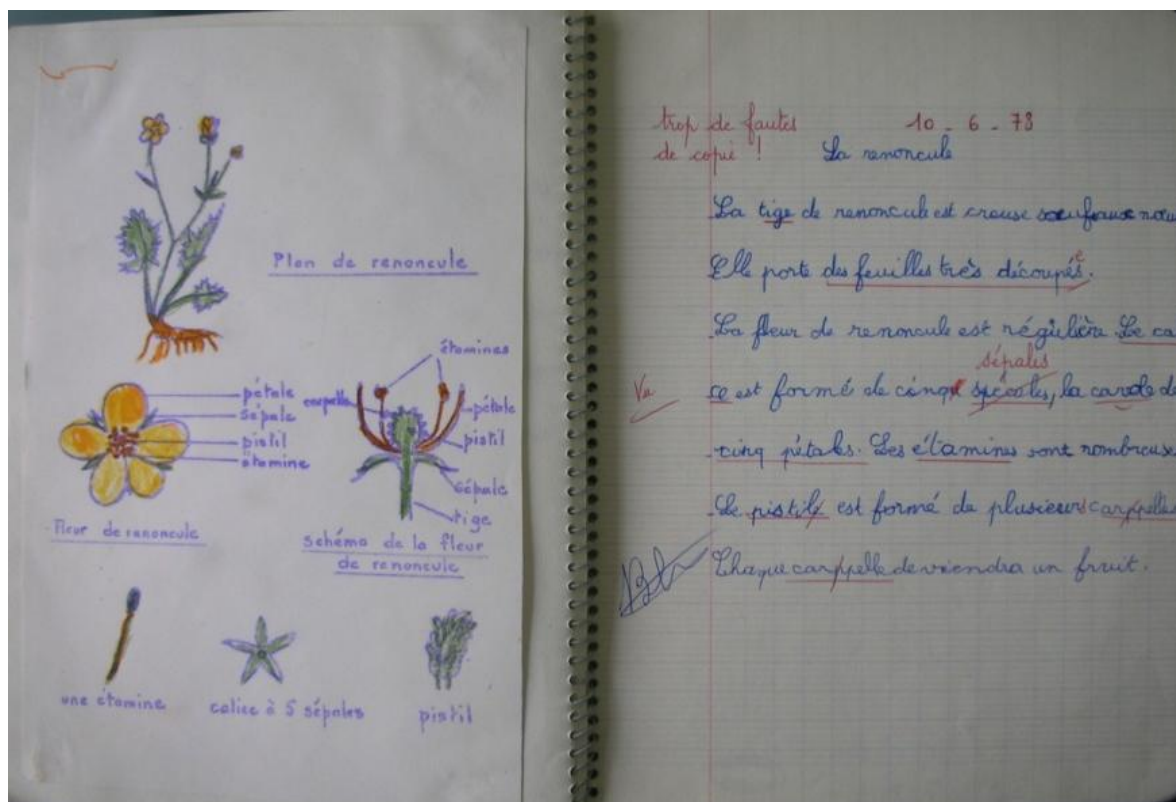 Plan de renoncule
étamines
pétale
sépale
pistil
étamine
carpelle
pétale
pistil
sépale
tige
Fleur de renoncule
Schéma de la fleur
de renoncule
une étamine
calice à 5 sépales
pistil
trop de fautes 10 - 6 - 78
de copie ! La renoncule
La tige de renoncule est creuse
Elle porte des feuilles très découpés. e
La fleur de renoncule est régulière. Le ca
sépales
Vu ce est formé de cinq, la carole de
cinq pétales. Les étamines sont nombreuse
Le pistil est formé de plusieurs carppelles
Chaque carppelle deviendra un fruit.